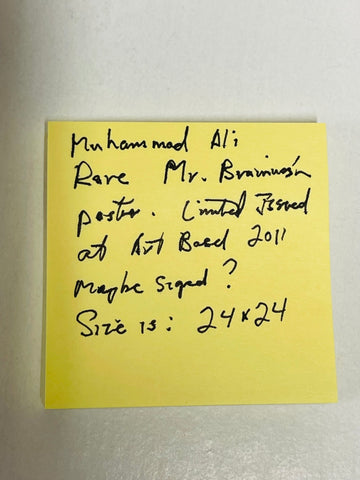 Muhammad Ali
Rare Mr. Brainwash
poster. Limited Issued
at Art Basel 2011
Maybe signed?
Size is: 24x24